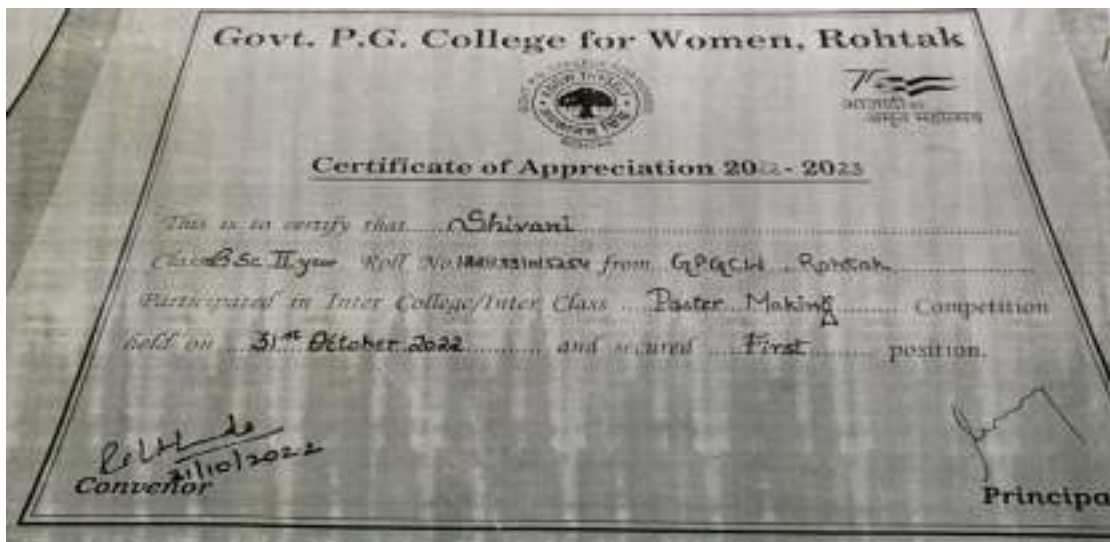 Govt. P.G. College for Women, Rohtak
आज़ादी का
अमृत महोत्सव
Certificate of Appreciation 2022 - 2023
This is to certify that Shivani
Class BSc II year Roll No. from GPGCW Rohtak
Participated in Inter College/Inter Class Poster Making Competition
held on 31st October 2022 and secured First position.
31/10/2022
Convenor
Principa